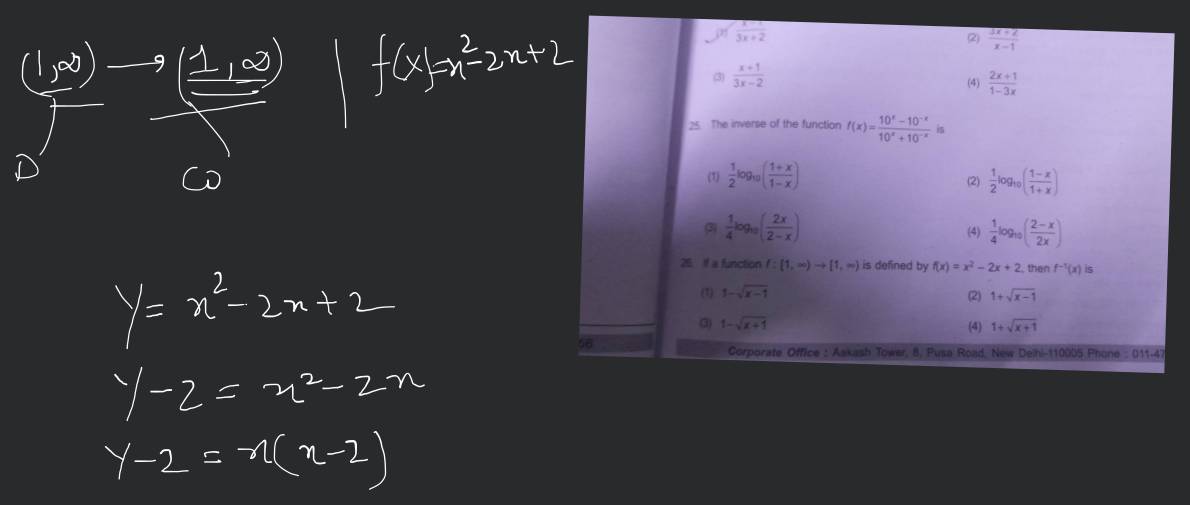 (1,∞) → (1,∞) | f(x)=x²-2x+2
D
CO
Y = x² - 2x + 2
Y - 2 = x² - 2x
Y - 2 = x(x-2)
3x+2
(2) 3x+2/x-1
(3) x+1/3x-2
(4) 2x+1/1-3x
25. The inverse of the function f(x) = 10ˣ - 10⁻ˣ/10ˣ + 10⁻ˣ is
(1) 1/2 log₁₀ (1+x/1-x)
(2) 1/2 log₁₀ (1-x/1+x)
(3) 1/4 log₁₀ (2x/2-x)
(4) 1/4 log₁₀ (2-x/2x)
26. If a function f : [1, ∞) → [1, ∞) is defined by f(x) = x² - 2x + 2, then f⁻¹(x) is
(1) 1-√x-1
(2) 1+√x-1
(3) 1-√x+1
(4) 1+√x+1
56
Corporate Office : Aakash Tower, 8, Pusa Road, New Delhi-110005 Phone : 011-47